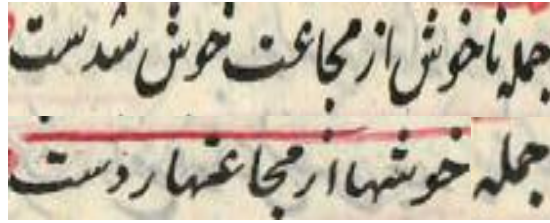 جمله ناخوش از مجاعت خوش شدست
جمله خوشها از مجاعتها ردست